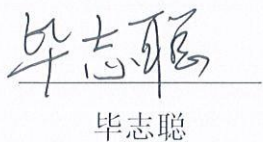 毕志聪
毕志聪